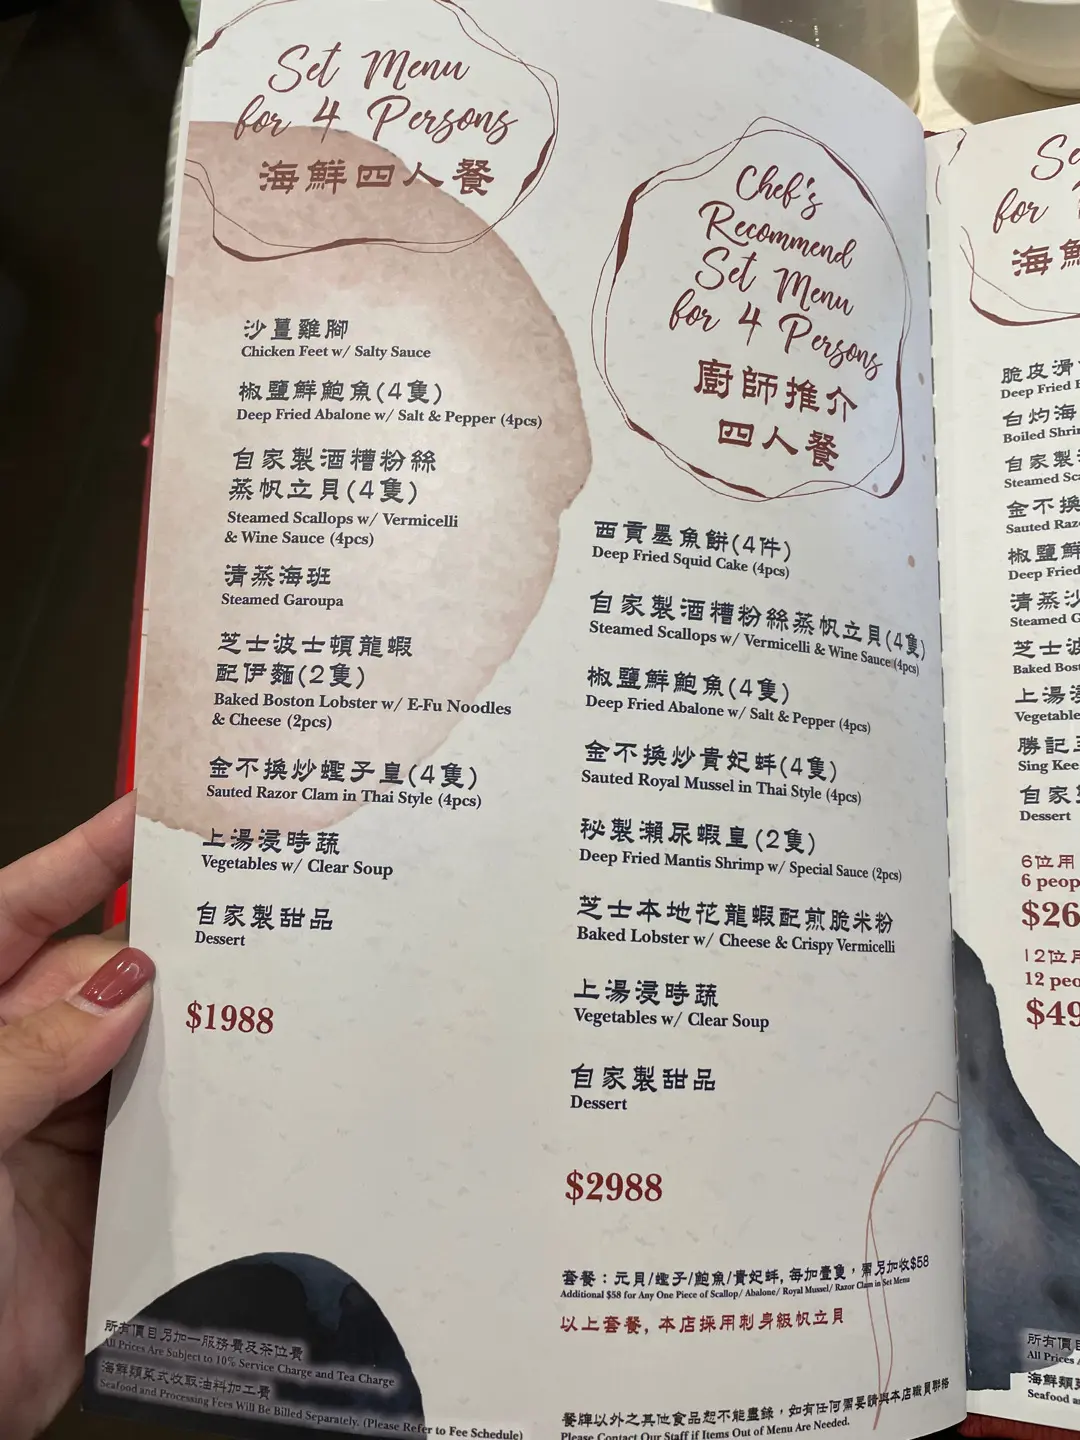 Set Menu
for 4 Persons
海鮮四人餐
沙薑雞腳
Chicken Feet w/ Salty Sauce
椒鹽鮮鮑魚(4隻)
Deep Fried Abalone w/ Salt & Pepper (4pcs)
自家製酒糟粉絲
蒸帆立貝(4隻)
Steamed Scallops w/ Vermicelli
& Wine Sauce (4pcs)
清蒸海班
Steamed Garoupa
芝士波士頓龍蝦
配伊麵(2隻)
Baked Boston Lobster w/ E-Fu Noodles
& Cheese (2pcs)
金不換炒蟶子皇(4隻)
Sauted Razor Clam in Thai Style (4pcs)
上湯浸時蔬
Vegetables w/ Clear Soup
自家製甜品
Dessert
$1988
所有價目另加一服務費及茶位費
All Prices Are Subject to 10% Service Charge and Tea Charge
海鮮類菜式收取油料加工費
Seafood and Processing Fees Will Be Billed Separately. (Please Refer to Fee Schedule)
Chef's
Recommend
Set Menu
for 4 Persons
廚師推介
四人餐
西貢墨魚餅(4件)
Deep Fried Squid Cake (4pcs)
自家製酒糟粉絲蒸帆立貝(4隻)
Steamed Scallops w/ Vermicelli & Wine Sauce (4pcs)
椒鹽鮮鮑魚(4隻)
Deep Fried Abalone w/ Salt & Pepper (4pcs)
金不換炒貴妃蚌(4隻)
Sauted Royal Mussel in Thai Style (4pcs)
秘製瀨尿蝦皇(2隻)
Deep Fried Mantis Shrimp w/ Special Sauce (2pcs)
芝士本地花龍蝦配煎脆米粉
Baked Lobster w/ Cheese & Crispy Vermicelli
上湯浸時蔬
Vegetables w/ Clear Soup
自家製甜品
Dessert
$2988
套餐：元貝/蟶子/鮑魚/貴妃蚌, 每加壹隻，需另加收$58
Additional $58 for Any One Piece of Scallop/ Abalone/ Royal Mussel/ Razor Clam in Set Menu
以上套餐, 本店採用刺身級帆立貝
餐牌以外之其他食品恕不能盡錄, 如有任何需要請與本店職員聯絡
Please Contact Our Staff if Items Out of Menu Are Needed.
for
海鮮
脆皮
Deep Fried
白灼海
Boiled
自家製
Steamed
金不換
Sauted
椒鹽鮮
Deep Fried
清蒸沙
Steamed
芝士波
Baked
上湯浸
Vegetable
勝記
Sing Kee
自家
Dessert
6位用
6 peop
$26
12位用
12 peo
$49
所有價目
All Prices
海鮮類
Seafood